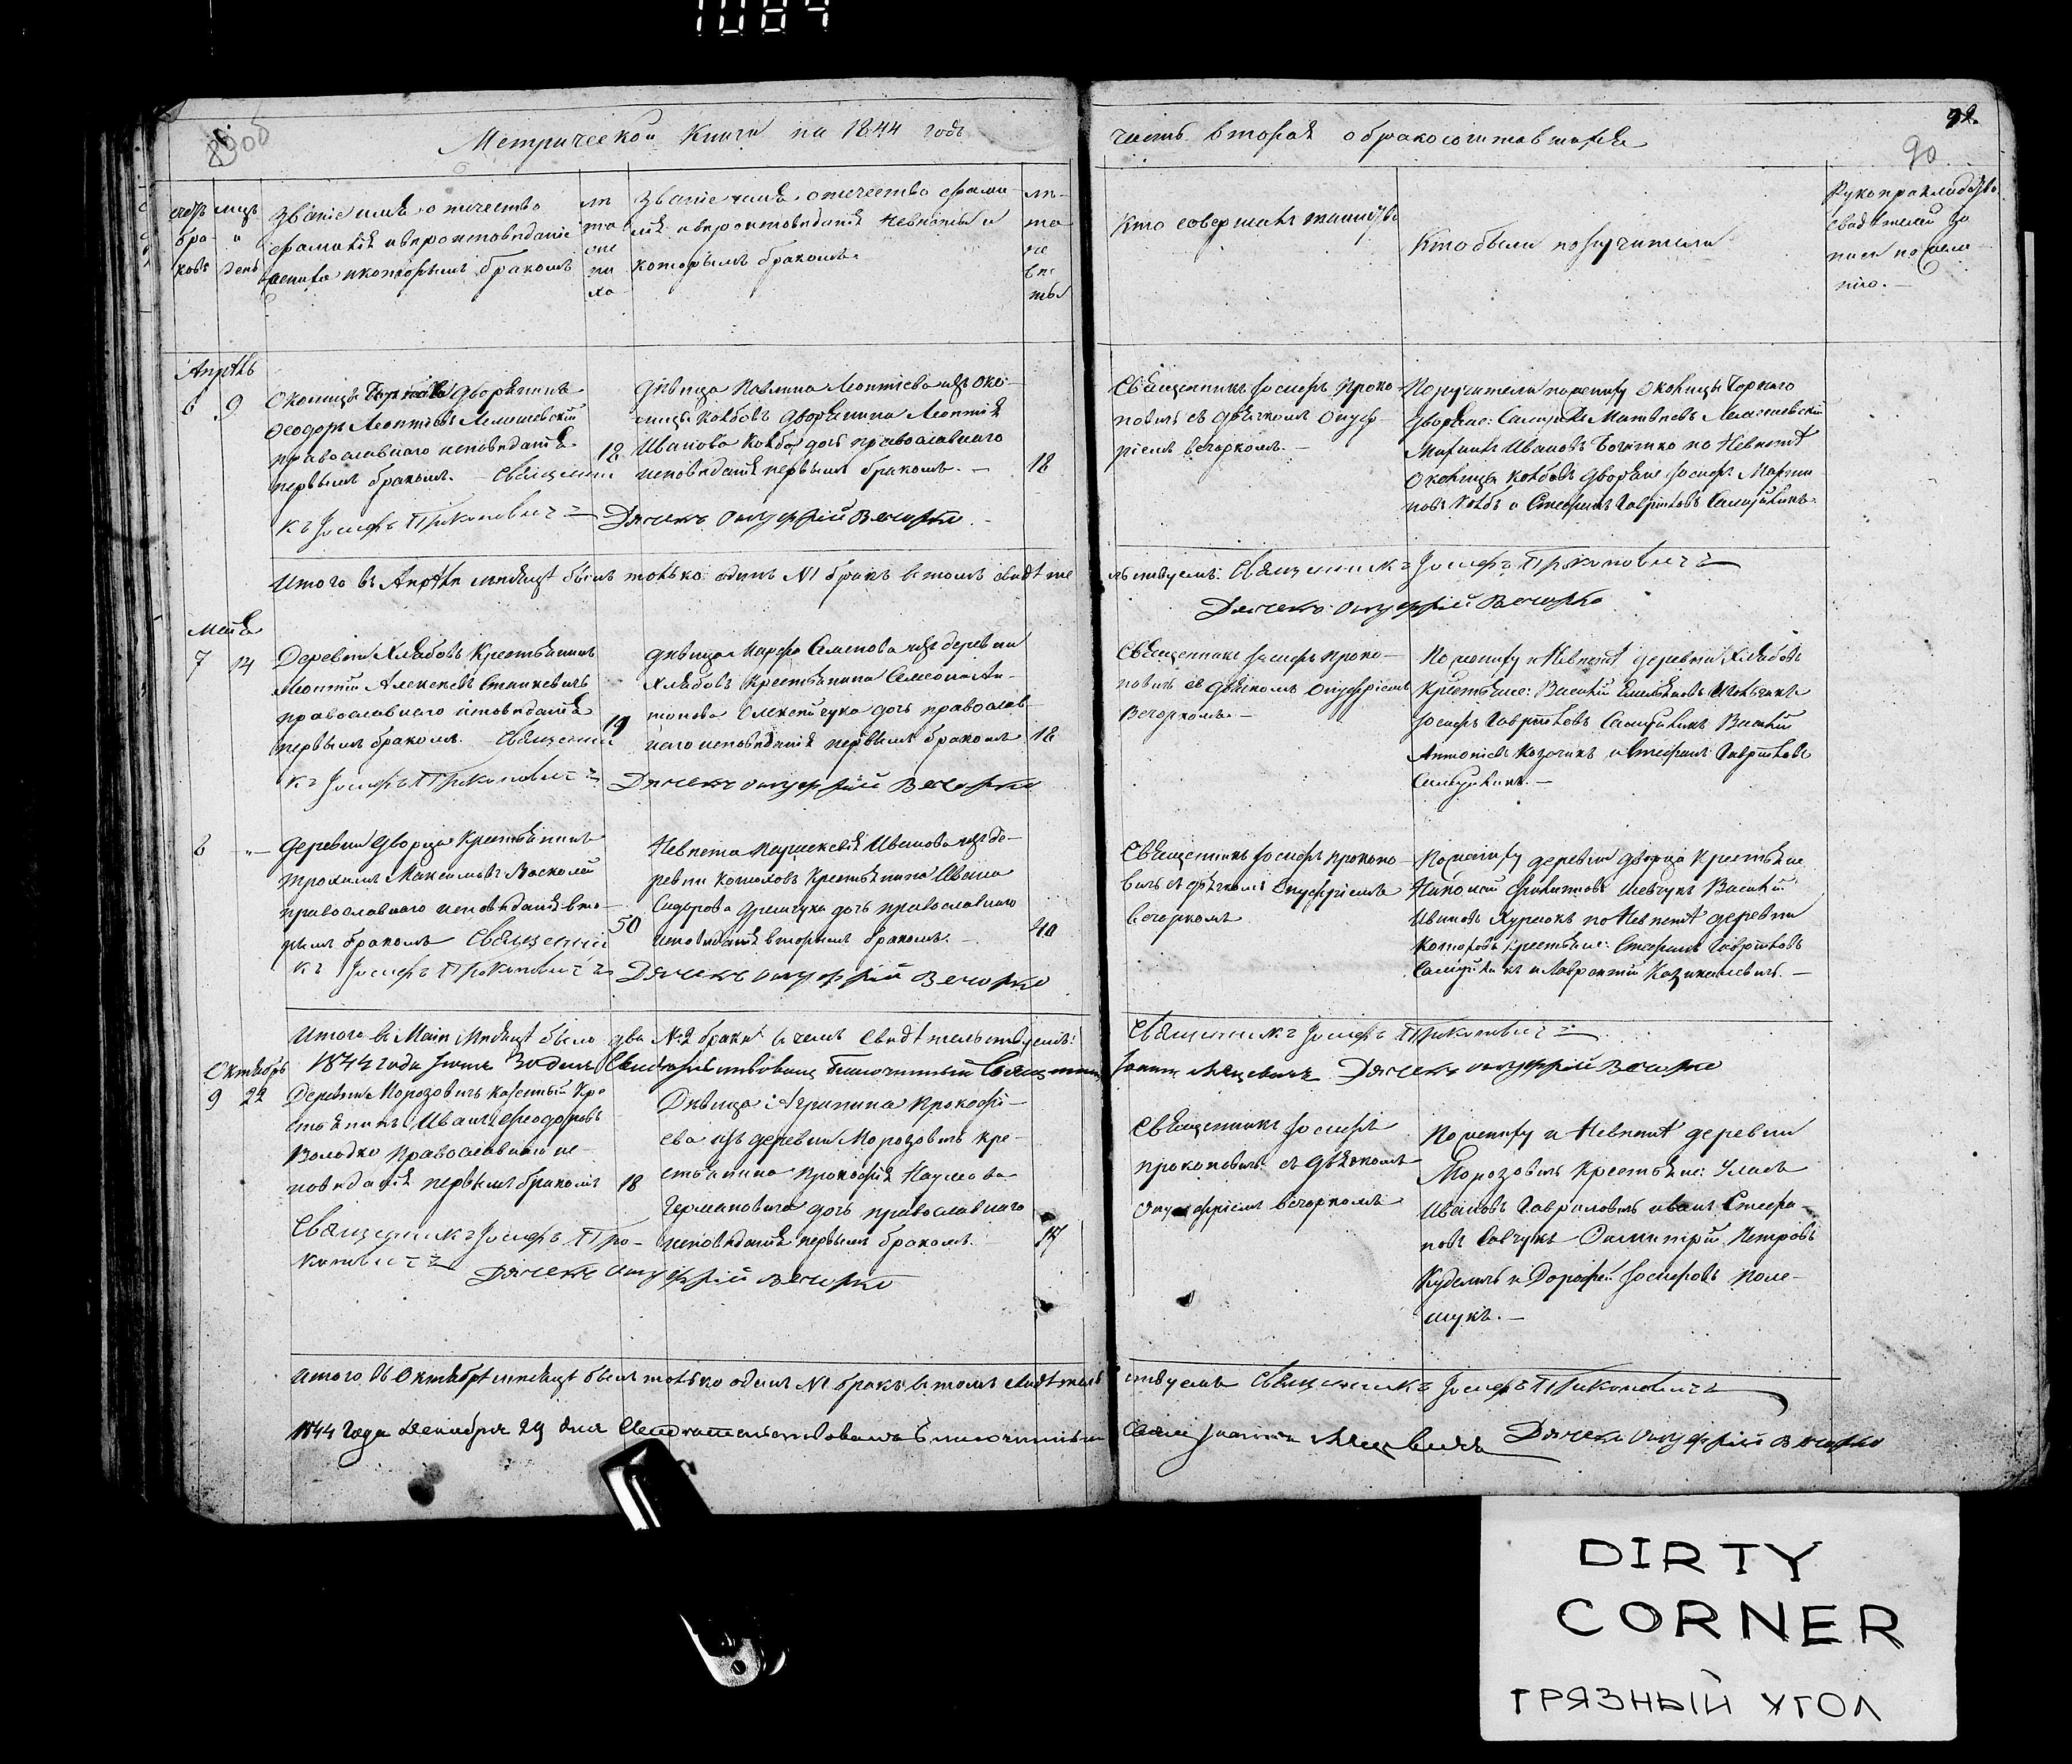 1084
Метрической Книги на 1844 годъ
часть вторая о бракосочитавшихся
90
счетъ
бра-
ковъ
мцъ
и
день
Званіе имя отечество
фамилія и вероисповѣданіе
жениха и которымъ бракомъ
лѣ
та
же
ни
ха
Званіе имя отечество фами-
лія и вероисповѣданія невѣсты и
которымъ бракомъ.
лѣ-
та
не
вѣ
сты
Кто совершалъ таинство
Кто были поручители
Рукоприкладство
свидѣтелей за
писи по жела-
нію.
Апрѣль
6 9
Околицы дворянинъ
Феодоръ Леонтіевъ
православнаго исповѣданія
первымъ бракомъ. Священни
къ Іосифъ Прокоповичъ
18
дѣвица Павлина Леонтіева изъ око-
лицы Колбовъ дворянина Леонтія
Иванова Колба дочь православнаго
исповѣданія первымъ бракомъ.
Дячекъ Онуфрій Вечорко
18
Священникъ Іосифъ Проко-
повичъ съ дьячкомъ Онуф-
ріемъ Вечоркомъ.
Поручители по женихѣ околицы
дворяне: Матвѣевъ
Ивановъ по невѣстѣ
околицы Колбовъ дворяне Іосифъ Марти-
новъ Колбъ и Стефанъ Гавриловъ
Итого въ Апрѣлѣ мѣсяцѣ былъ только одинъ №1 бракъ въ томъ свидѣте
льствуемъ: Священникъ Іосифъ Прокоповичъ
Дячекъ Онуфрій Вечорко
Мая
7 14
Деревни Хлябовъ Крестьянинъ
Леонтій Алексеевъ Станкевичъ
православнаго исповѣданія
первымъ бракомъ. Священни
къ Іосифъ Прокоповичъ
19
дѣвица Марфа Семенова изъ деревни
Хлябовъ крестьянина Семеона Ан-
тонова Олексейчука дочь православ-
наго исповѣданія первымъ бракомъ
Дячекъ Онуфрій Вечорко
18
Священникъ Іосифъ Проко-
повичъ съ дьячкомъ Онуфріемъ
Вечоркомъ.
По женихѣ и невѣстѣ деревни Хлябовъ
Крестьяне: Василій
Іосифъ Гавриловъ Василій
Антоніевъ и Стефанъ Гавриловъ
8 „
деревни Дворца Крестьянинъ
Трохимъ Максимовъ
православнаго исповѣданія вто-
рымъ бракомъ Священни
къ Іосифъ Прокоповичъ
50
Невѣста Иванова изъ де-
ревни Крестьянина Ивана
Сидорова дочь православнаго
исповѣданія вторымъ бракомъ.
Дячекъ Онуфрій Вечорко
40
Священникъ Іосифъ Прокопо-
вичъ съ дьячкомъ Онуфріемъ
Вечоркомъ
По женихѣ деревни Дворца Крестьяне
Николай Шевчукъ Василій
Ивановъ по невѣстѣ деревни
крестьяне: Стефанъ Гавриловъ
и Лаврентій
Итого въ Маіи Мѣсяцѣ было два №2 брака въ чемъ свидѣтельствуемъ:
Священникъ Іосифъ Прокоповичъ
1844 года дня Свидѣтельствовалъ Благочинный Священникъ
Іоаннъ Дячекъ Онуфрій Вечорко
Октябрь
9 22
Деревни Морозовичъ казенный Кре-
стьянинъ Иванъ Феодоровъ
Володко Православнаго ис-
повѣданія первымъ бракомъ
Священникъ Іосифъ Про-
коповичъ
18
Дѣвица Агрипина Прокофі-
ева изъ деревни Морозовичъ кре-
стьянина Прокофія Наумова
Германовича дочь православнаго
исповѣданія первымъ бракомъ.
Дячекъ Онуфрій Вечорко
17
Священникъ Іосифъ
Прокоповичъ съ дьячкомъ
Онуфріемъ Вечоркомъ
По женихѣ и невѣстѣ деревни
Морозовичъ Крестьяне: Уласъ
Ивановъ Гавриловичъ Иванъ Стефа-
новъ Савчукъ Димитрій Петровъ
Куделичъ и Дорофей Іосифовъ Поле-
щукъ.
Итого въ Октябрѣ мѣсяцѣ былъ только одинъ №1 бракъ въ томъ свидѣтель
ствуемъ Священникъ Іосифъ Прокоповичъ
1844 года Декабря 29 дня Свидѣтельствовалъ Благочинный
Іоаннъ Дячекъ Онуфрій Вечорко
DIRTY
CORNER
ГРЯЗНЫЙ УГОЛ